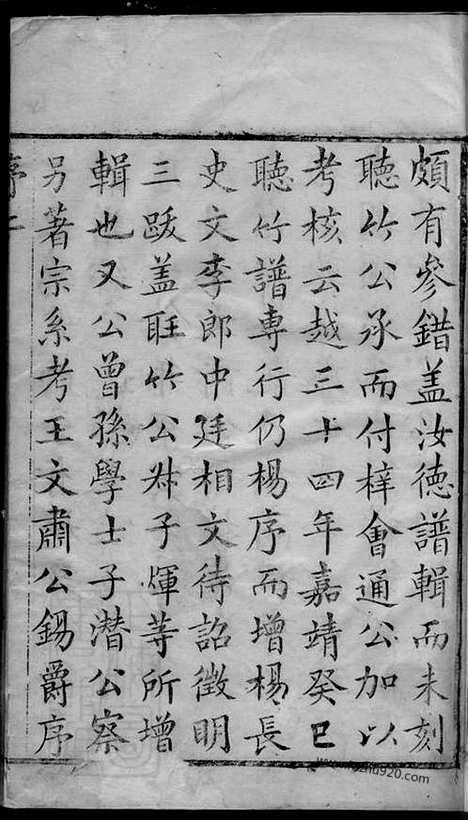 頗有參錯蓋汝德譜輯而未刻
聽竹公承而付梓會通公加以
考核云越三十四年嘉靖癸巳
聽竹譜專行仍楊序而增楊長
史文李郎中廷相文待詔徵明
三跋盖聽竹公 子煇等所增
輯也又公曾孫學士子潜公察
另著宗系考王文肅公錫爵序
序